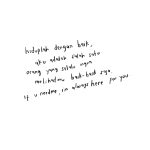 hiduplah dengan baik,
aku adalah salah satu
orang yang selalu ingin
melihatmu baik-baik saja.
if u needme, i'm always here for you